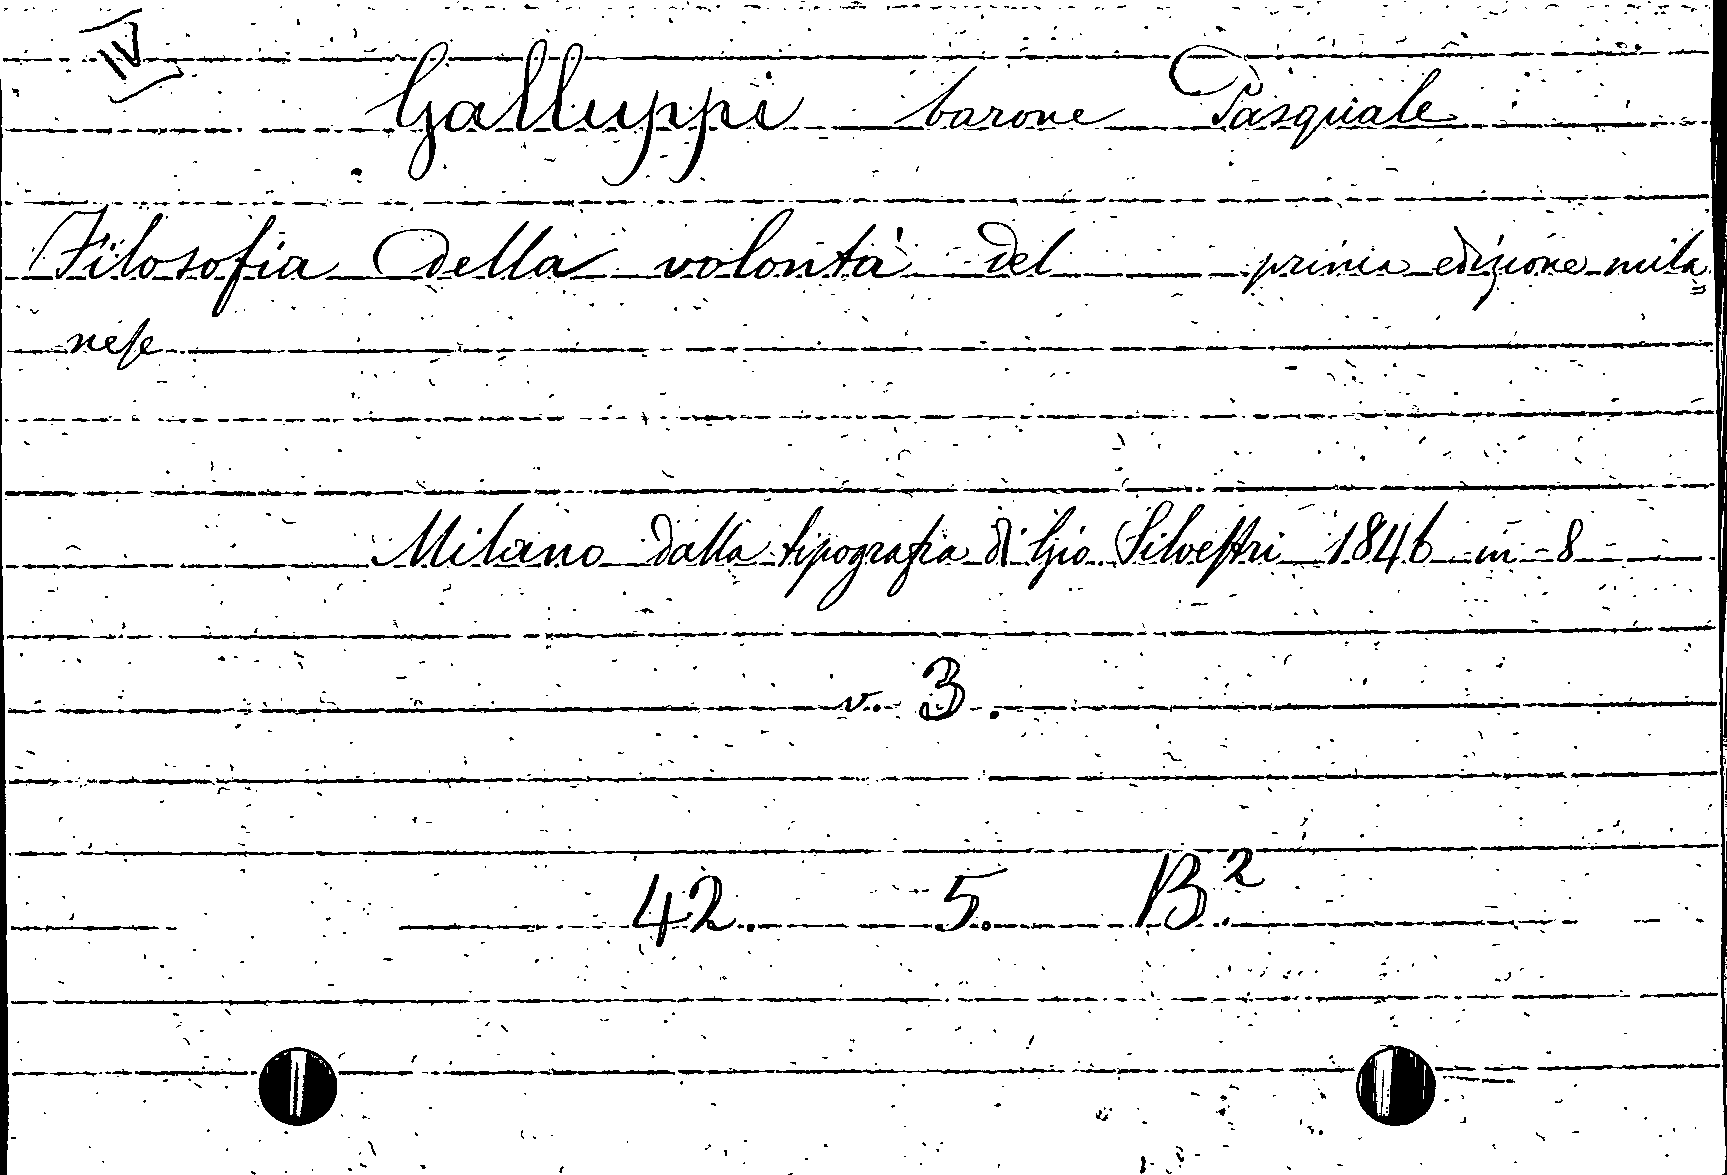 IV
Galluppi barone Pasquale
Filosofia della volontà del prima edizione mila=
nese
Milano dalla tipografia di Gio. Silvestri 1846 in 8
v. 3.
42. 5. B.²